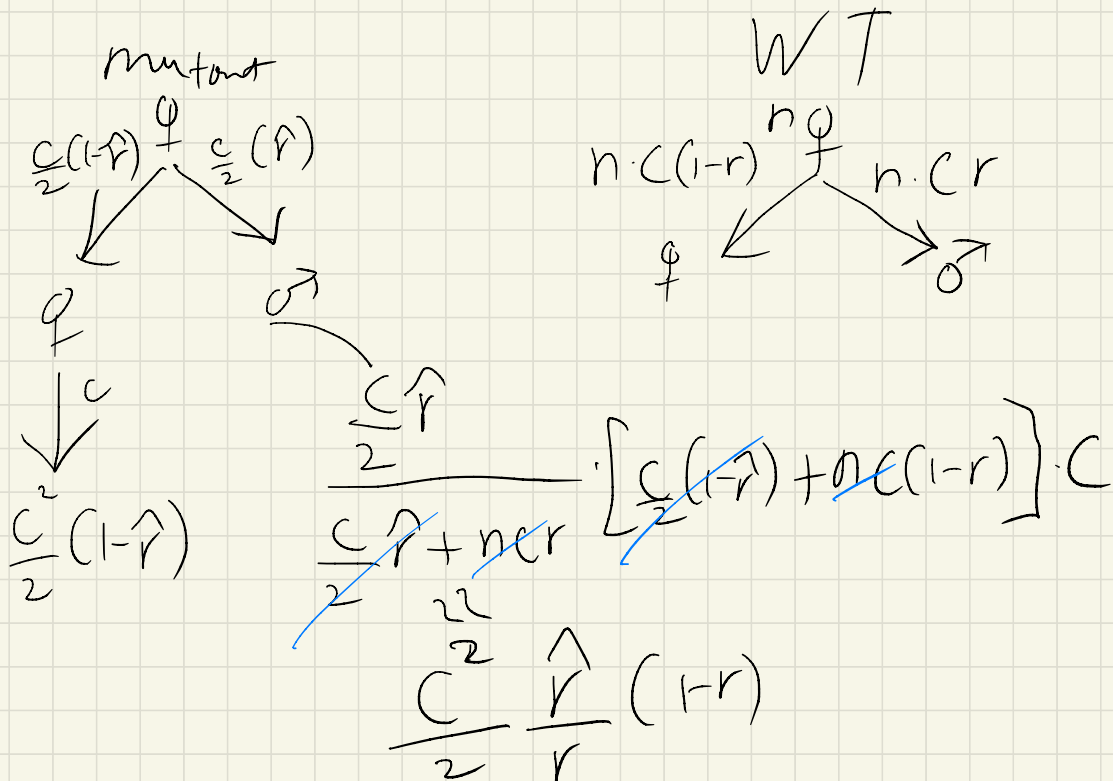 mutant
♀
c/2 (1-r̂)
c/2 (r̂)
♀
♂
c
c²/2 (1-r̂)
WT
n ♀
n·c(1-r)
n·c r
♀
♂
c/2 r̂ / (c/2 r̂ + ncr) · [c/2 (1-r̂) + nc(1-r)] · c
≈
c²/2 r̂/r (1-r)